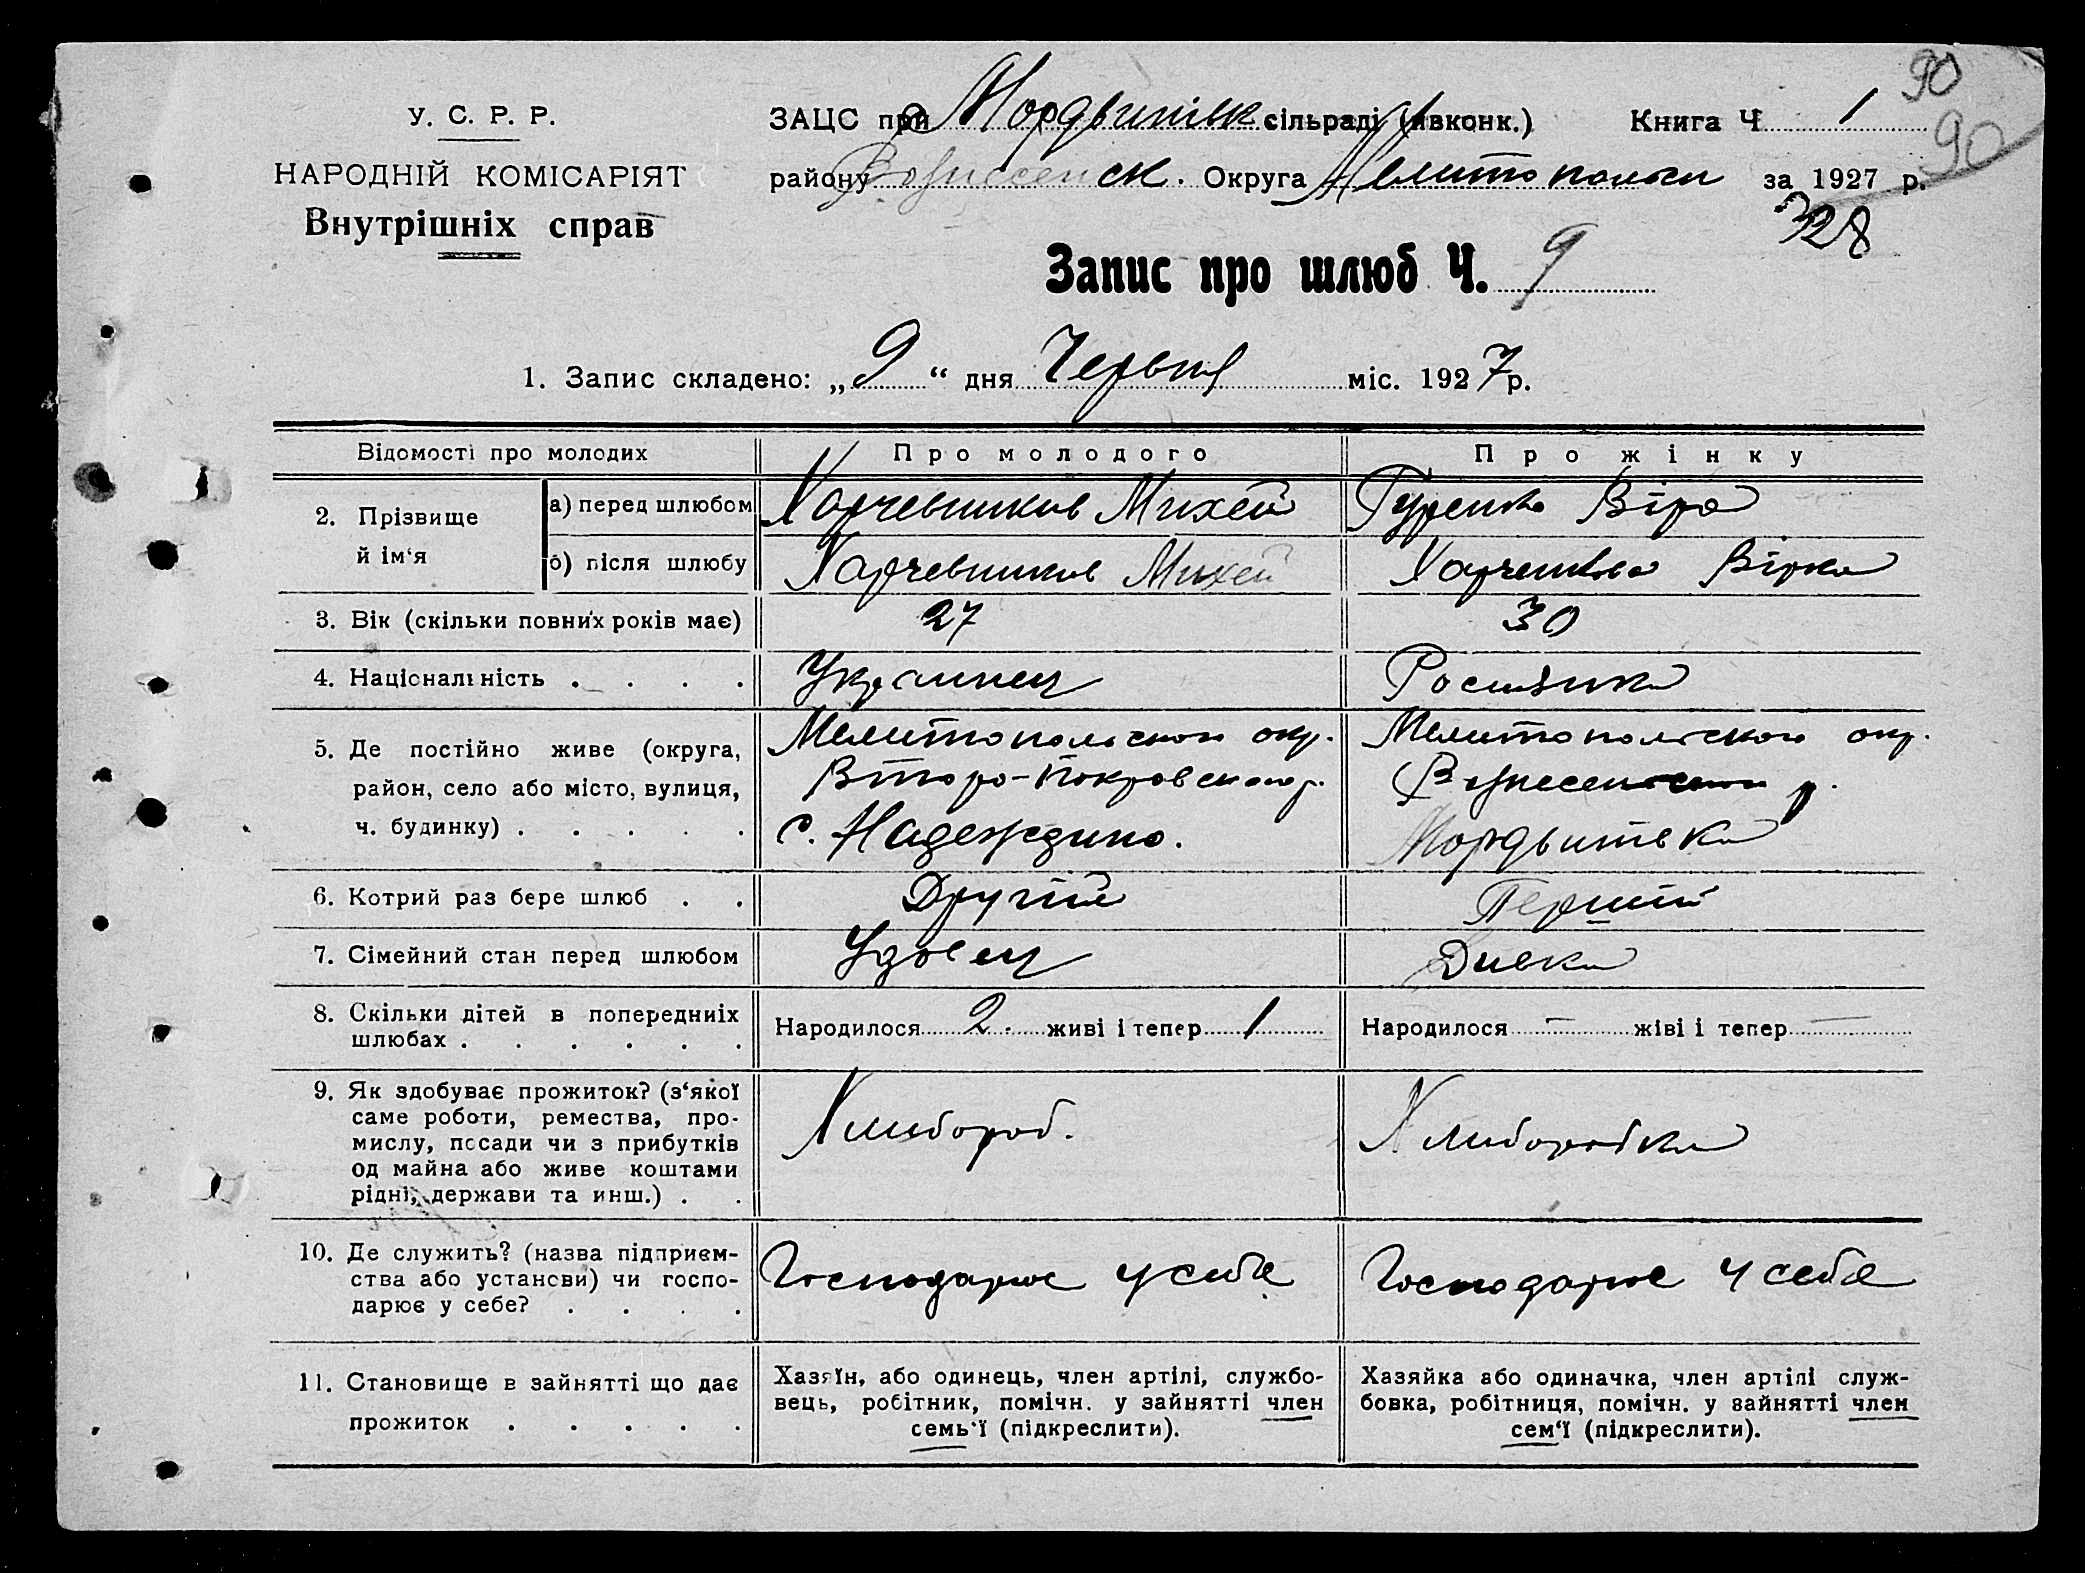 У. С. Р. Р.
НАРОДНІЙ КОМІСАРІЯТ
Внутрішніх справ
ЗАЦС при Мордвинівк сільраді (явконк.) Книга Ч 1
90
90
району Вознесенск. Округа Мелитопольск за 1927 р.
328
Запис про шлюб Ч. 9
1. Запис складено: „ 9 “ дня Червня міс. 1927 р.
Відомості про молодих
Про молодого
Про жінку
2. Прізвище й ім‘я
а) перед шлюбом
Харчевников Михей
Гуренко Віра
б) після шлюбу
Харчевников Михей
Вірка
3. Вік (скільки повних років має)
27
30
4. Національність . . . .
Украинец
Росиянка
5. Де постійно живе (округа,
район, село або місто, вулиця,
ч. будинку) . . . . .
Мелитопольскои окр.
Второ-Покровского р.
с. Надеждино.
Мелитопольскои окр.
Вознесенскои р.
Мордвинівка
6. Котрий раз бере шлюб . .
Другий
Перший
7. Сімейний стан перед шлюбом
Удовец
Дивка
8. Скільки дітей в попередниіх
шлюбах . . . . . .
Народилося 2. живі і тепер 1
Народилося — жіві і тепер —
9. Як здобуває прожиток? (з‘якої
саме роботи, ремества, про-
мислу, посади чи з прибутків
од майна або живе коштами
рідні, держави та инш.) . .
Хлибороб.
Хлиборобка
10. Де служить? (назва підприєм-
ства або установи) чи госпо-
дарює у себе? . . . .
Господарює у себе
Господарює у себе
11. Становище в зайнятті що дає
прожиток . . . . .
Хазяїн, або одинець, член артілі, службо-
вець, робітник, помічн. у зайнятті член
семь‘ї (підкреслити).
Хазяйка або одиначка, член артілі служ-
бовка, робітниця, помічн. у зайнятті член
сем‘ї (підкреслити).